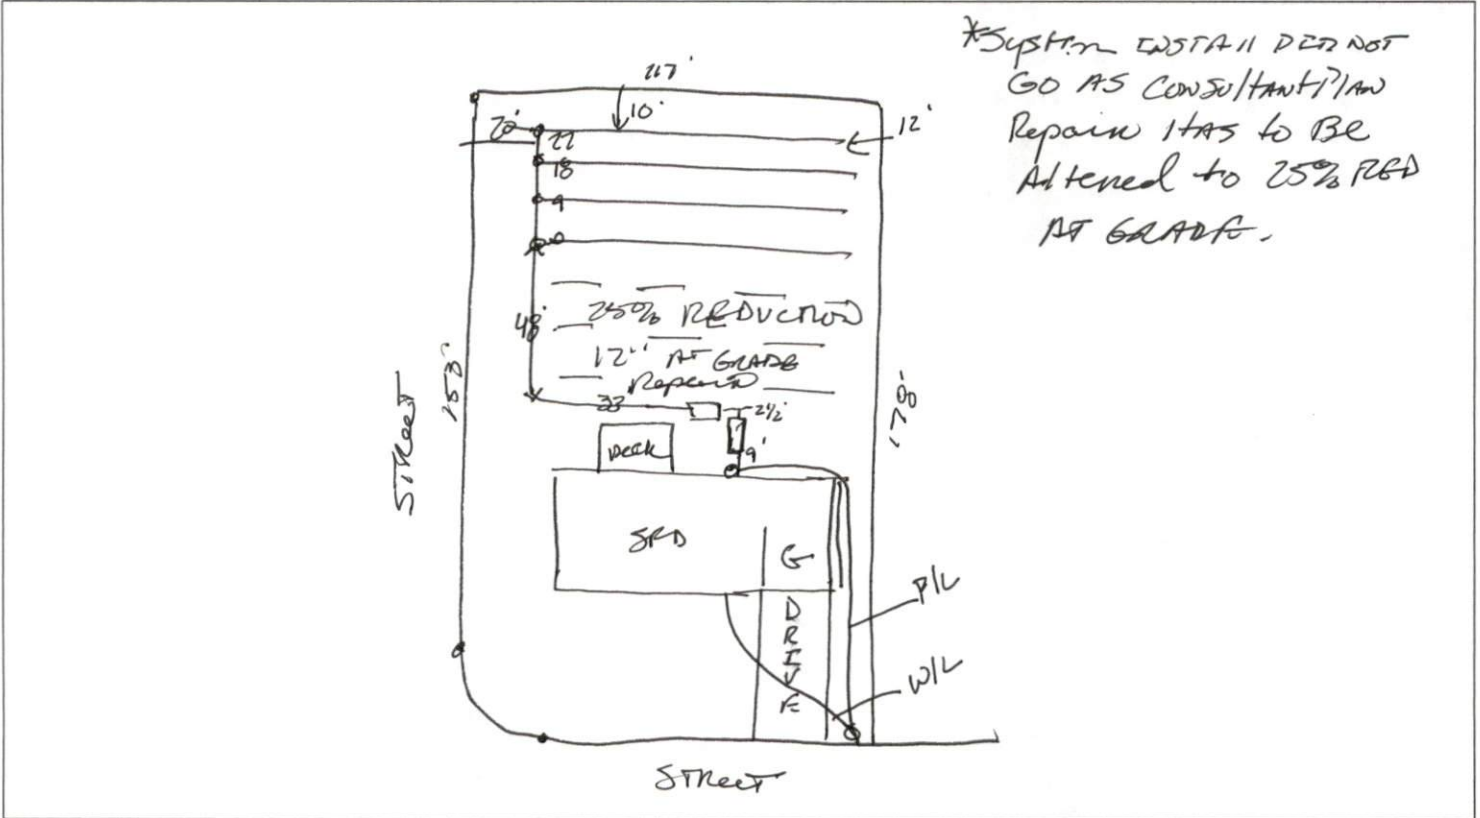 *System INSTAll DID NOT
GO AS Consultant Plan
Repair HAS to Be
Altered to 25% RED
AT GRADE.
117'
10'
12'
20'
22
18
9
0
48'
25% REDUCTION
12" AT GRADE
Repair
33
2½'
9'
Deck
STReet
153'
178'
SFD
G
DRIVE
P/L
W/L
STReeT